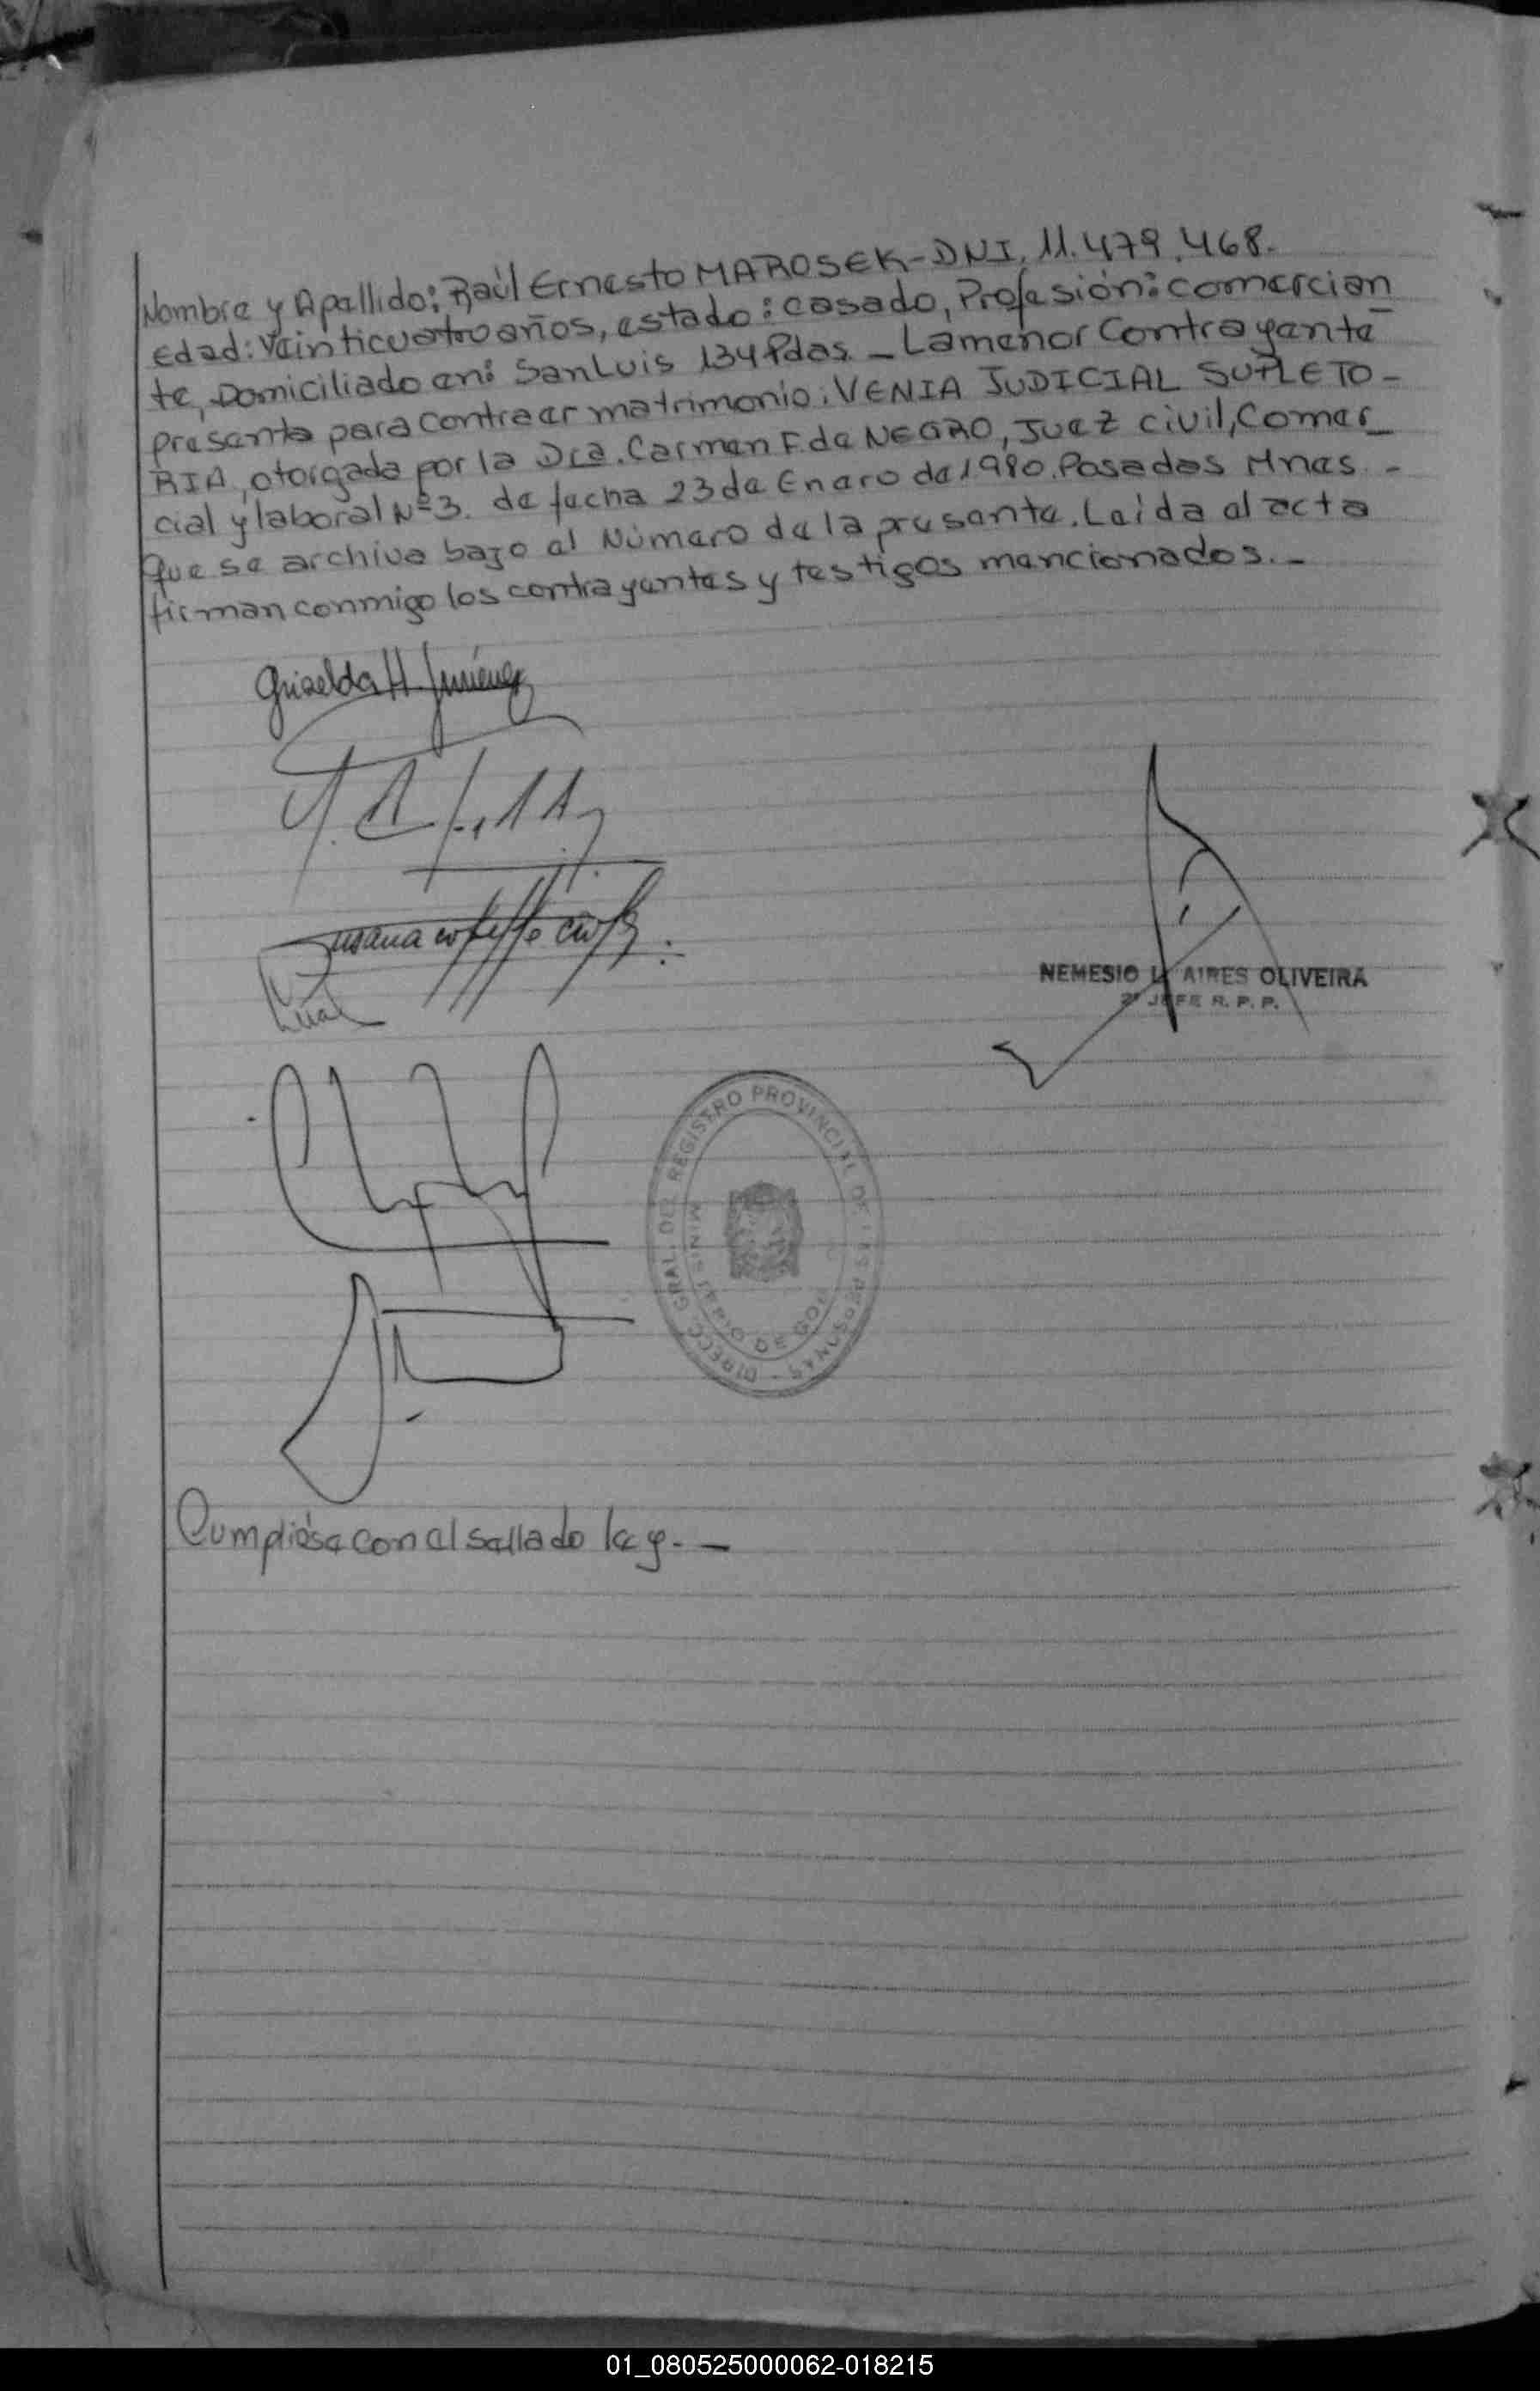 Nombre y Apellido: Raúl Ernesto MAROSEK-DNI. 11.479.468.
Edad: Veinticuatro años, estado: casado, Profesión: comercian
te, Domiciliado en: San Luis 134 Pdas. - La menor Contrayente
presenta para contraer matrimonio: VENIA JUDICIAL SUPLETO-
RIA, otorgada por la Dra. Carmen F. de NEGRO, Juez civil, Comer_
cial y laboral Nº 3. de fecha 23 de Enero de 1980. Posadas Mnes. -
Que se archiva bajo el Número de la presente. Leída el acta
firman conmigo los contrayentes y testigos mencionados. -
Griselda H. Jiménez
Susana
NEMESIO L. AIRES OLIVEIRA
2º JEFE R. P. P.
DIRECC. GRAL. DEL REGISTRO PROVINCIAL DE LAS PERSONAS -
MINISTERIO DE GOB
Cumplióse con el sellado ley. -
01_080525000062-018215